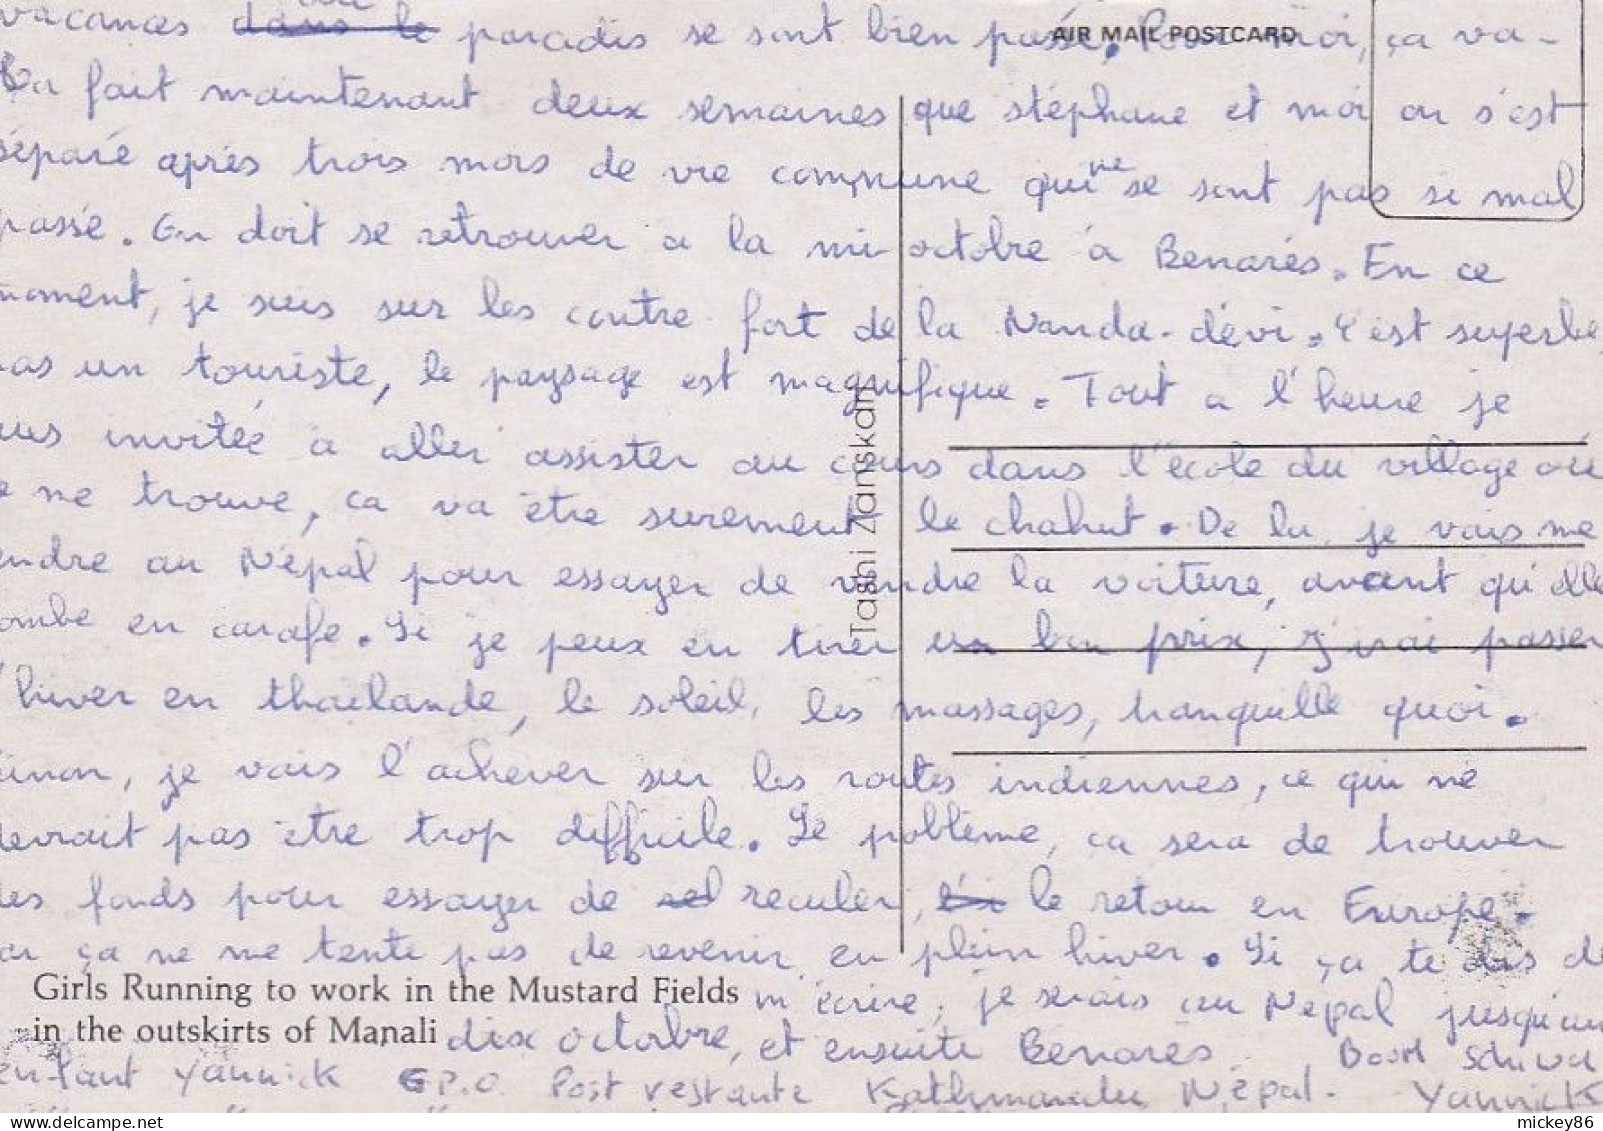 vacances au paradis se sont bien passé. Pour moi, ça va -
AIR MAIL POSTCARD
Ca fait maintenant deux semaines que stéphane et moi on s'est
séparé après trois mois de vie commune qui ne se sont pas si mal
passé. On doit se retrouver a la mi-octobre à Benarés. En ce
moment, je suis sur les contre-fort de la Nanda-dévi. C'est superbe
pas un touriste, le paysage est magnifique. Tout a l'heure je
suis invitée à aller assister au cours dans l'école du village où
je me trouve, ca va être surement le chahut. De la, je vais me
rendre au Népal pour essayer de vendre la voiture, avant qu'elle
tombe en carafe. Si je peux en tirer un bon prix, j'irai passer
l'hiver en thaelande, le soleil, les massages, tranquille quoi.
sinon, je vais l'achever sur les routes indiennes, ce qui ne
devrait pas être trop difficile. Le problème, ça sera de trouver
des fonds pour essayer de reculer, le retour en Europe.
car ça ne me tente pas de revenir en plein hiver. Si ça te dis de
m'écrire, je serais au Népal jusqu'au
dix octobre, et ensuite Benarés Boom Schiva
enfant Yannick G.P.O. Post restante Kathmandu Népal. Yannick
Tashi Zanskari
Girls Running to work in the Mustard Fields
in the outskirts of Manali
mickey86